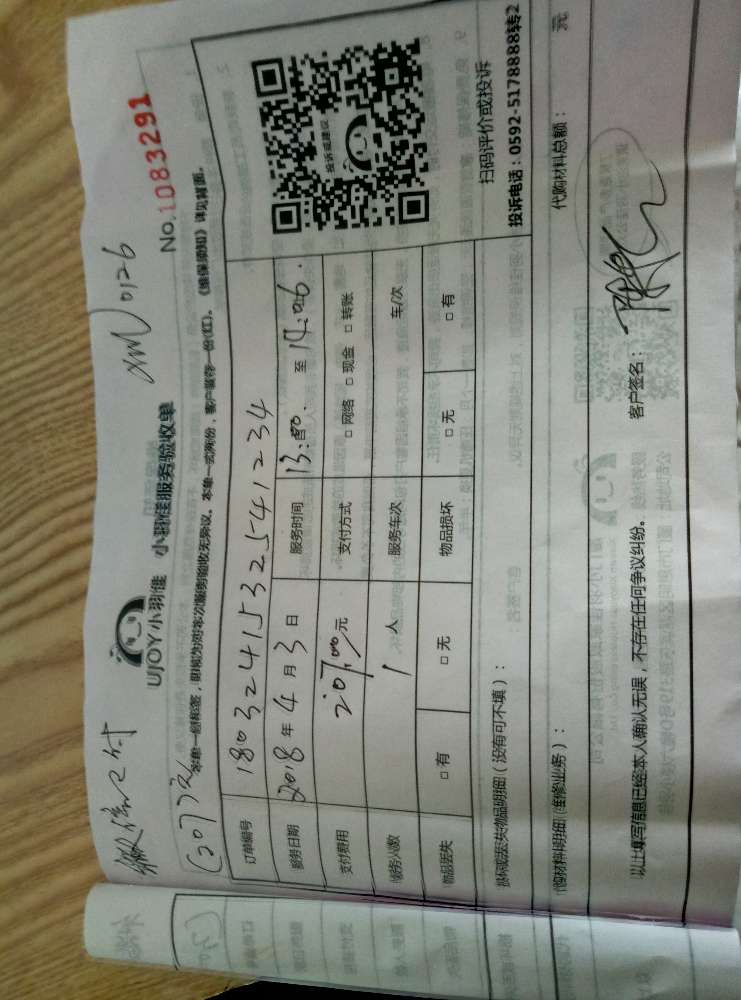 微信已付
(207元)
XM0126
UJOY小羽佳 小羽佳服务验收单
No.1083291
本单一经签，即视为对本次服务验收无异议。本单一式两份，客户留存一份(红)。《维保须知》详见背面。
订单编号 1803241532541234
服务日期 2018年4月3日 服务时间 13:00.至14:06.
支付费用 207.00元 支付方式 □网络 □现金 □转账
服务人数 1人 服务车次 车/次
物品丢失 □有 □无 物品损坏 □无 □有
投诉或建议
扫码评价或投诉
投诉电话：0592-5178888转2
损坏或丢失物品明细（没有可不填）：
代购材料明细（维修业务）： 代购材料总额： 元
以上填写信息已经本人确认无误，不存在任何争议纠纷。 客户签名：